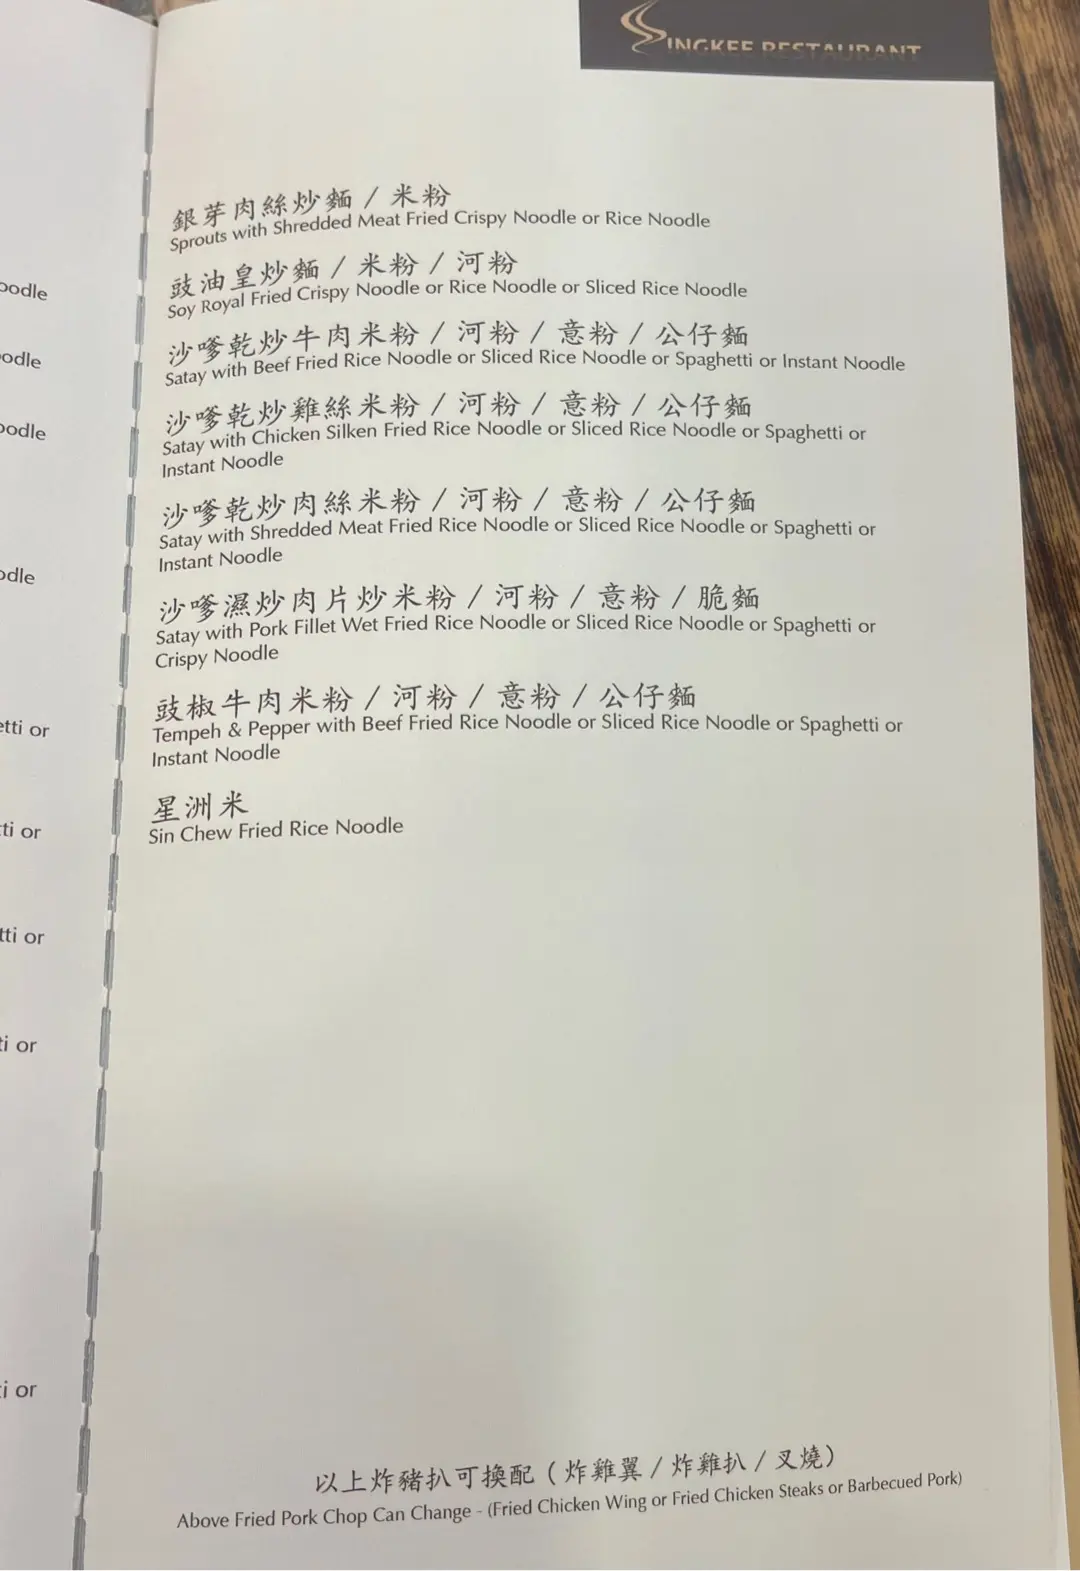 SINGKEE RESTAURANT
銀芽肉絲炒麵 / 米粉
Sprouts with Shredded Meat Fried Crispy Noodle or Rice Noodle
豉油皇炒麵 / 米粉 / 河粉
Soy Royal Fried Crispy Noodle or Rice Noodle or Sliced Rice Noodle
沙嗲乾炒牛肉米粉 / 河粉 / 意粉 / 公仔麵
Satay with Beef Fried Rice Noodle or Sliced Rice Noodle or Spaghetti or Instant Noodle
沙嗲乾炒雞絲米粉 / 河粉 / 意粉 / 公仔麵
Satay with Chicken Silken Fried Rice Noodle or Sliced Rice Noodle or Spaghetti or
Instant Noodle
沙嗲乾炒肉絲米粉 / 河粉 / 意粉 / 公仔麵
Satay with Shredded Meat Fried Rice Noodle or Sliced Rice Noodle or Spaghetti or
Instant Noodle
沙嗲濕炒肉片炒米粉 / 河粉 / 意粉 / 脆麵
Satay with Pork Fillet Wet Fried Rice Noodle or Sliced Rice Noodle or Spaghetti or
Crispy Noodle
豉椒牛肉米粉 / 河粉 / 意粉 / 公仔麵
Tempeh & Pepper with Beef Fried Rice Noodle or Sliced Rice Noodle or Spaghetti or
Instant Noodle
星洲米
Sin Chew Fried Rice Noodle
以上炸豬扒可換配 ( 炸雞翼 / 炸雞扒 / 叉燒)
Above Fried Pork Chop Can Change - (Fried Chicken Wing or Fried Chicken Steaks or Barbecued Pork)
or
or
or
or
or